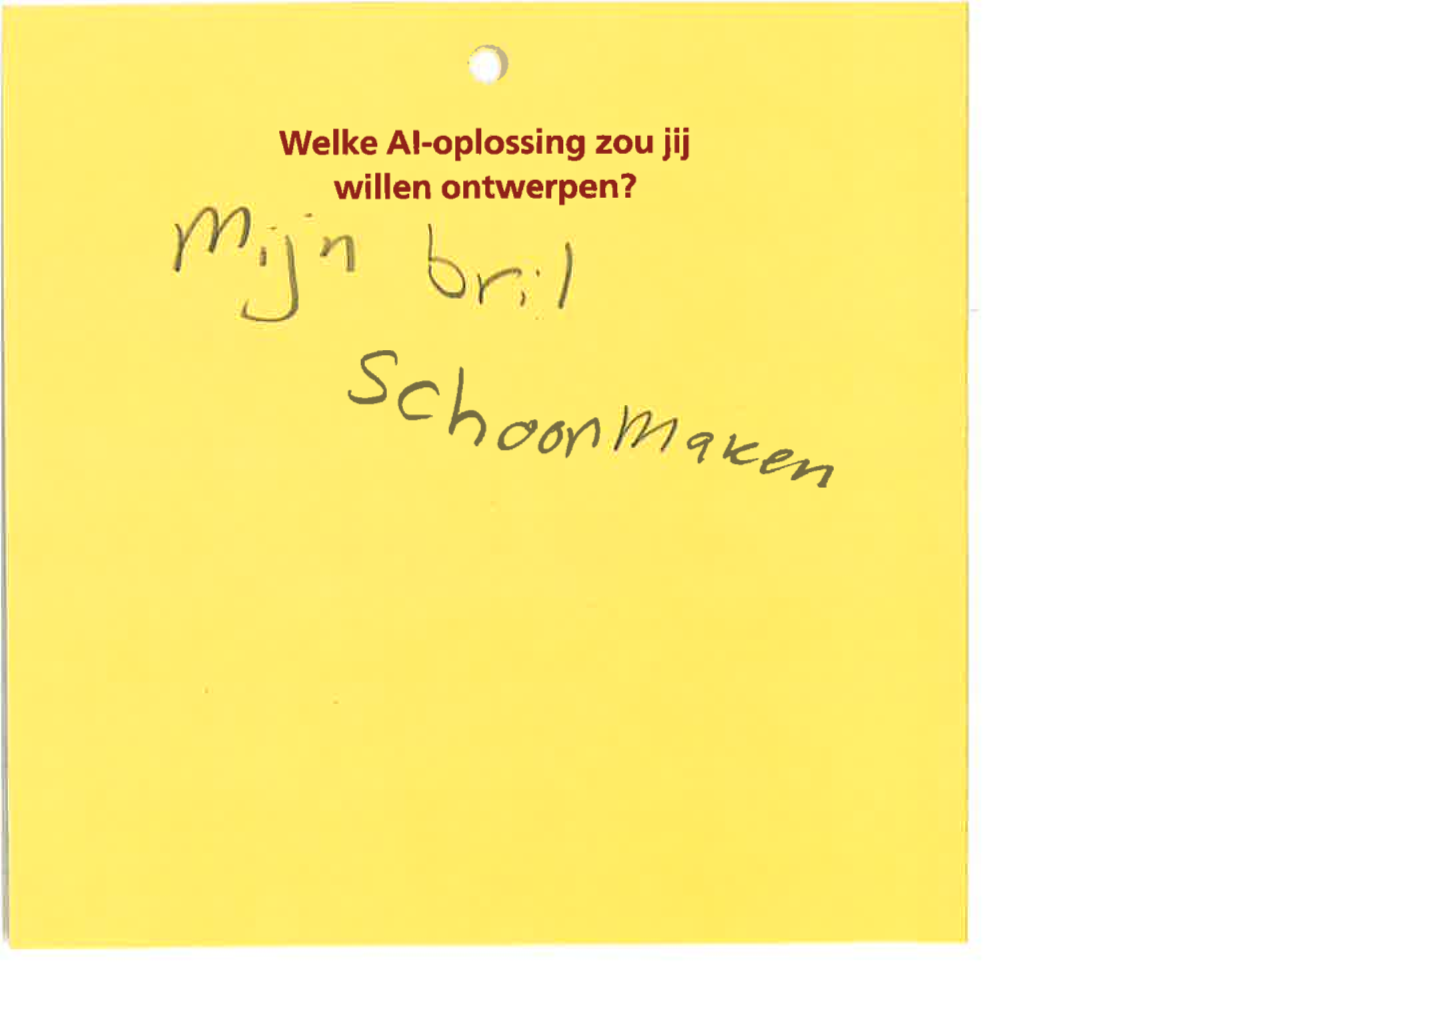 Welke AI-oplossing zou jij
willen ontwerpen?
Mijn bril
Schoonmaken